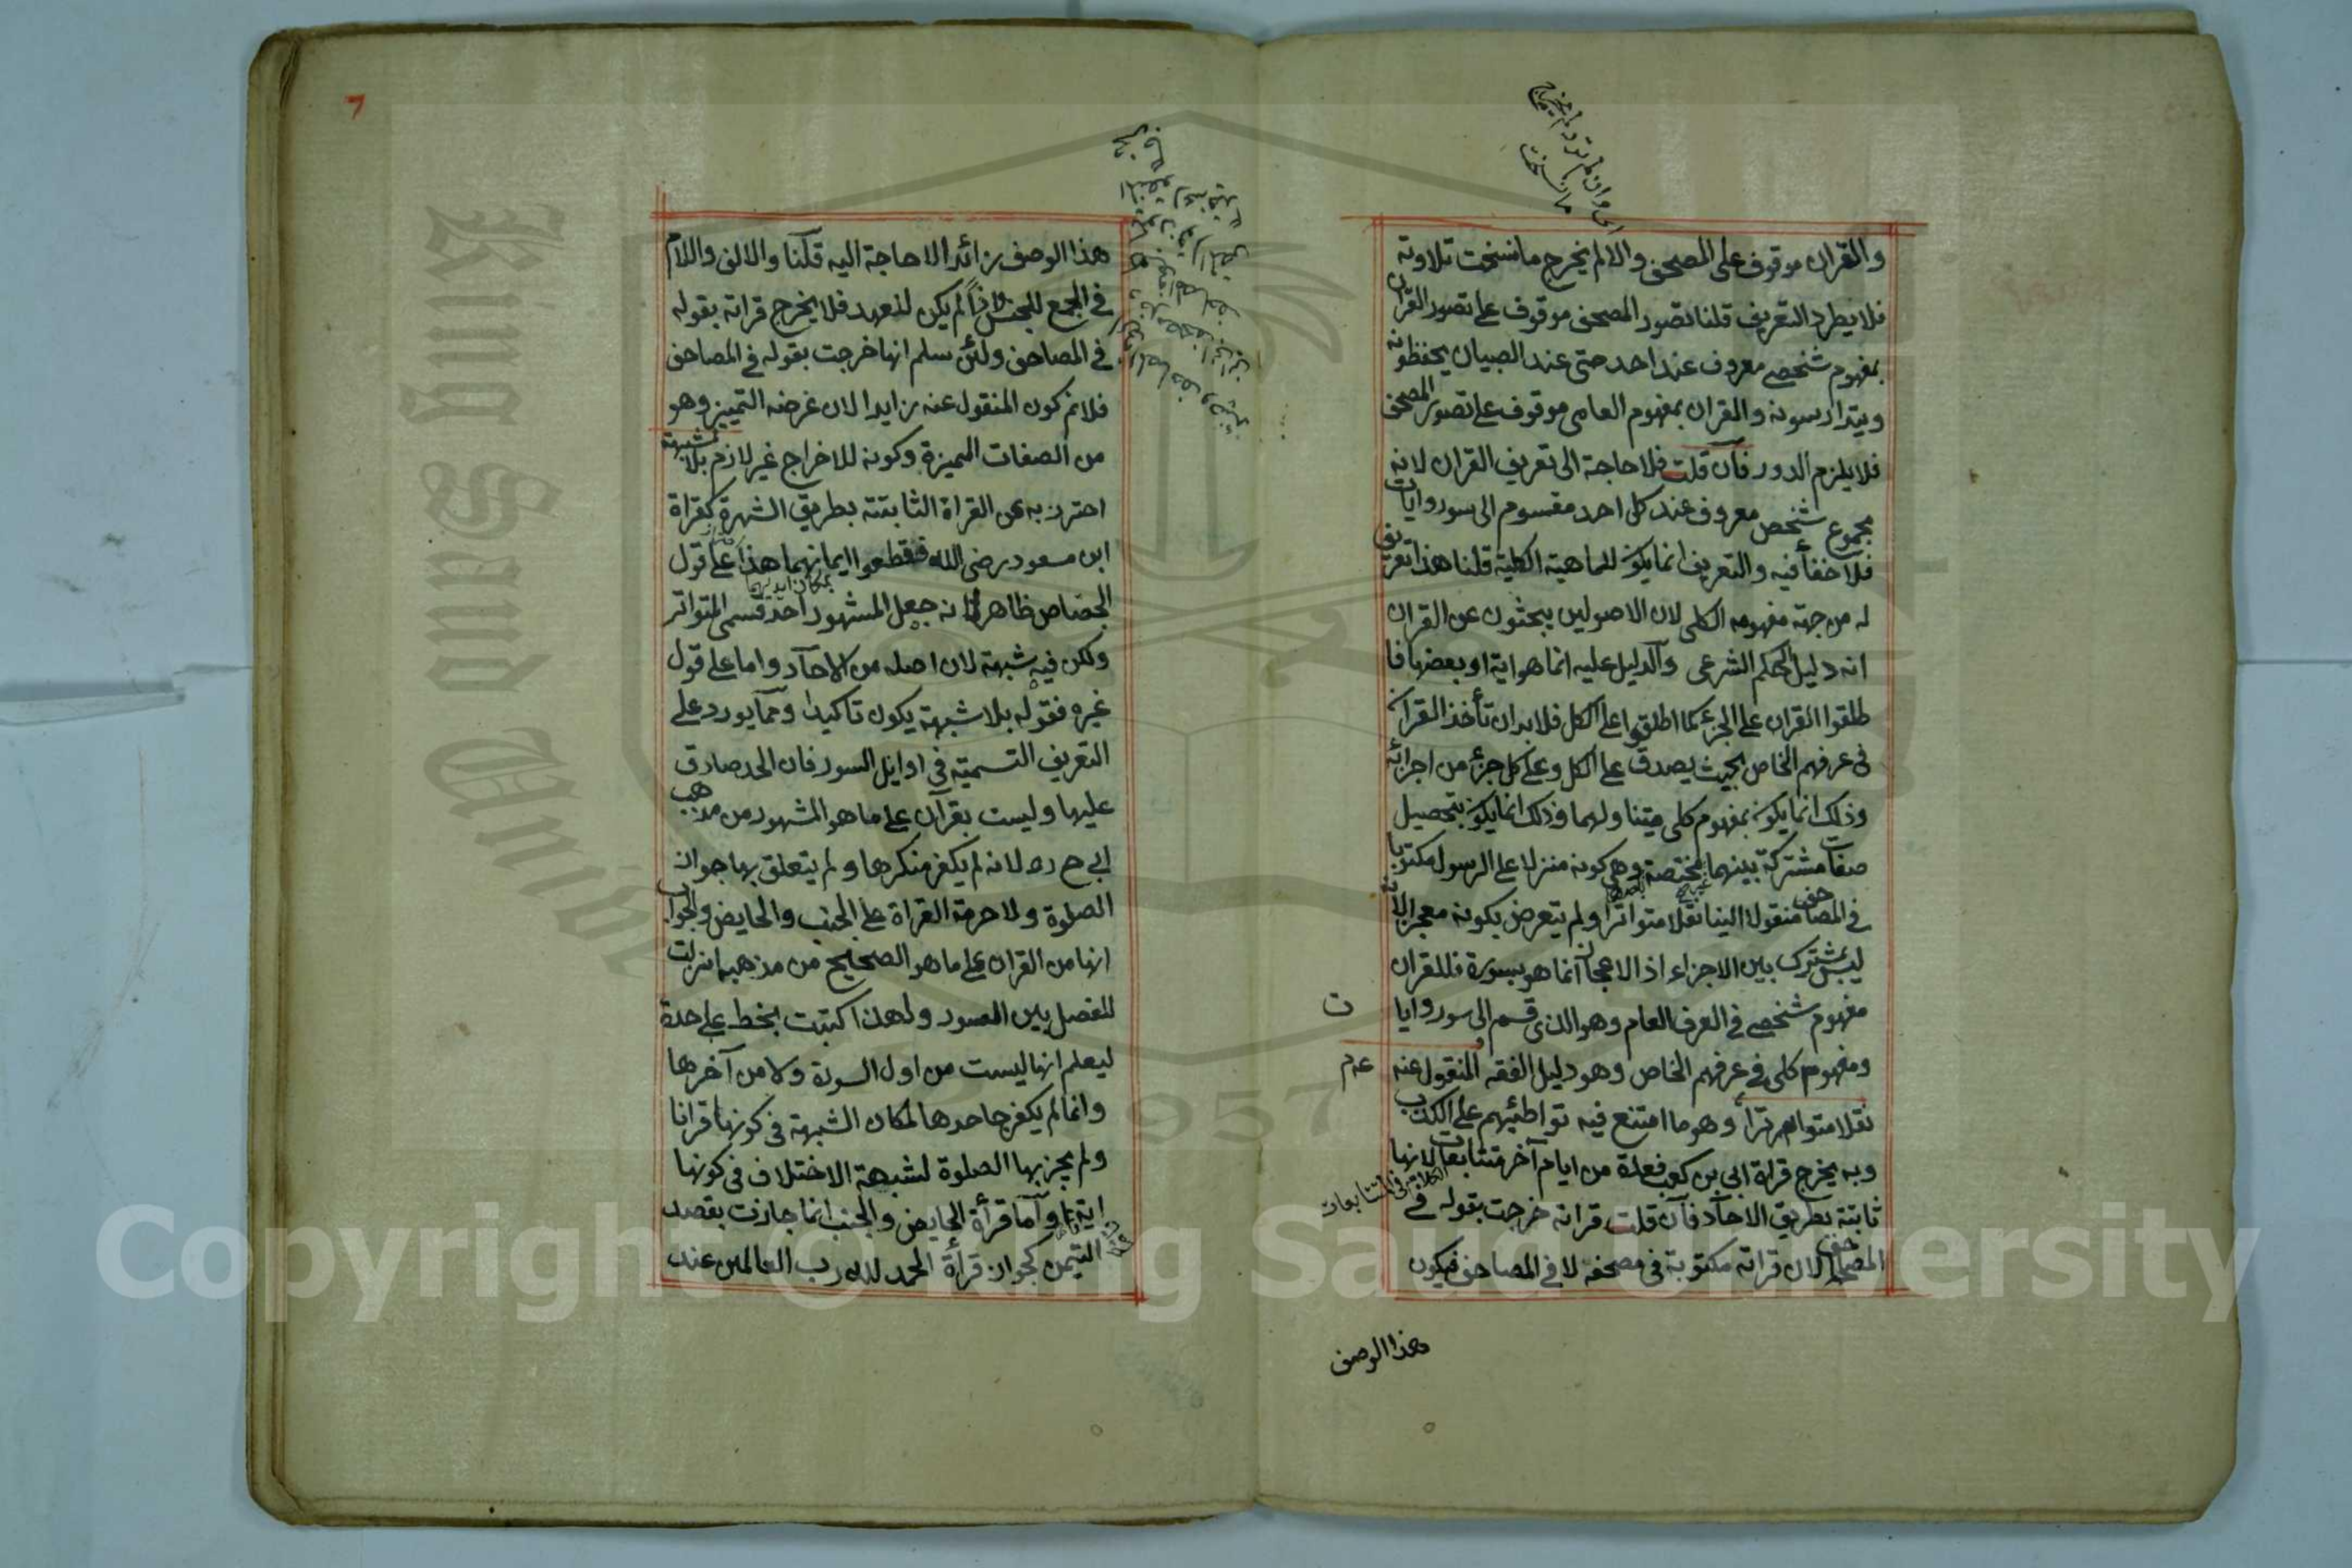 والقران موقوف على المصحف والا لم يخرج ما نسخت تلاوته
فلا يطرد التعريف قلنا تصور المصحف موقوف على تصور القران
بمفهوم شخصي معروف عند احد حتى عند الصبيان يحفظونه
ويتدارسونه والقران بمفهوم العامى موقوف على تصور المصحف
فلا يلزم الدور فآن قلت فلا حاجة الى تعريف القران لانه
مجموع شخص معروف عند كل احد مقسوم الى سور وايات
فلا خفأ فيه والتعريف انما يكون للماهية الكلية قلنا هذا تعريف
له من جهة مفهومه الكلى لان الاصولين يبحثون عن القران
انه دليل الحكم الشرعى والدليل عليه انما هو اية او بعضها فا
طلقوا القران على الجزء كما اطلقوا على الكل فلا بد ان تأخذ القران
فى عرفهم الخاص بحيث يصدق على الكل وعلى كل جزء من اجزائه
وذلك انما يكون بمفهوم كلى يتناولهما وذلك انما يكون بتحصيل
صفات مشتركة بينهما مختصة وهى كونه منزلا على الرسول مكتوبا
فى المصاحف منقولا الينا نقلا متواترا ولم يتعرض بكونه معجزا لانه
ليس بمشترك بين الاجزاء اذ الاعجاز انما هو بسورة فللقران
مفهوم شخصي فى العرف العام وهو الذى قسم الى سور وايا
ت
ومفهوم كلى فى عرفهم الخاص وهو دليل الفقه المنقول عنه
عدم
نقلا متواترا وهو ما امتنع فيه تواطئهم على الكذب
وبه يخرج قراة ابى بن كعب فعدة من ايام آخر متتابعات لانها
ثابتة بطريق الاحآد فآن قلت قراته خرجت بقوله فى
المصاحف لان قراته مكتوبة فى مصحفه لا فى المصاحف فيكون
هذا الوصف
7
هذا الوصف زائدا لا حاجة اليه قلنا والالف واللام
فى الجمع للجنس اذا لم يكن لذعهد فلا يخرج قراته بقوله
فى المصاحف ولئن سلم انها خرجت بقوله فى المصاحف
فلانم كون المنقول عنه زايدا لان غرضه التمييز وهو
من الصفات المميزة وكونه للاخراج غير لازم بلا شبهة
احترز به عن القراة الثابتة بطريق الشهرة كقراة
ابن مسعود رضى الله فقطعوا ايمانهما هذا على قول
بمكان ايديهما
الجصاص ظاهر لانه جعل المشهور احد قسمى المتواتر
ولكن فيه شبهة لان اصله من الاحآد واما على قول
غيره فقوله بلا شبهة يكون تاكيدا ومما يورد على
التعريف التسمية فى اوايل السور فان الحد صادق
عليها وليست بقرآن على ما هو المشهور من مذهب
ابى ح ره لانه لم يكفر منكرها ولم يتعلق بها جواز
الصلوة ولا حرمة القراة على الجنب والحايض والجواب
انها من القران على ما هو الصحيح من مذهبه انزلت
للفصل بين السور ولهذا كتبت بخط على حدة
ليعلم انها ليست من اول السورة ولا من آخرها
وانما لم يكفر جاحدها لمكان الشبهة فى كونها قرانا
ولم يجز بها الصلوة لشبهة الاختلاف فى كونها
اية وآما قرأة الحايض والجنب انما جازت بقصد
التيمن كجواز قرأة الحمد لله رب العالمين عند
King Saud University
1957
Copyright © King Saud University